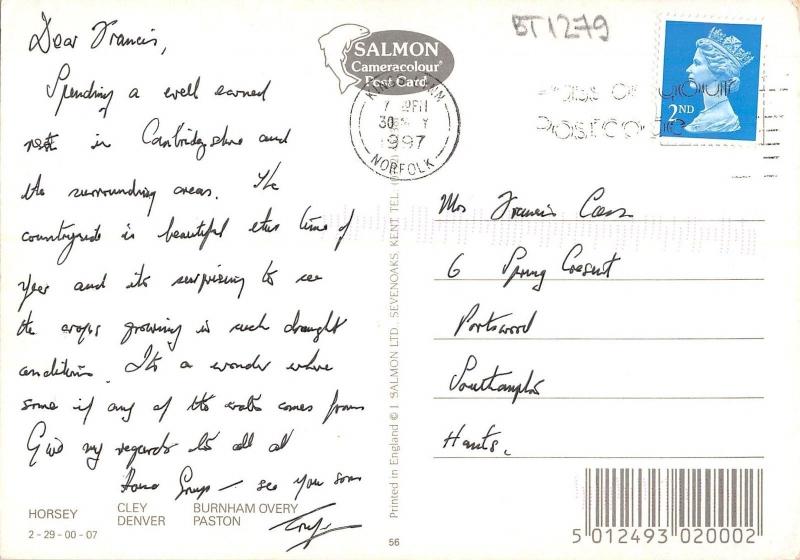 Dear Francis,
Spending a well earned
rest in Cambridgeshire and
the surrounding areas. The
countryside is beautiful this time of
year and its surprising to see
the crops growing in such drought
conditions. It's a wonder where
some if any of the water comes from
Give my regards to all at
see you soon
HORSEY
CLEY
DENVER
BURNHAM OVERY
PASTON
2-29-00-07
56
Printed in England © J. SALMON LTD., SEVENOAKS, KENT. TEL.
SALMON
Cameracolour
Post Card
BT1279
KINGS LYNN
7 PM
30 Y
1997
NORFOLK
POSTCODE
2ND
Mrs Francis Cass
6 Spring Cresent
Portswood
Southampton
Hants.
5 012493 020002